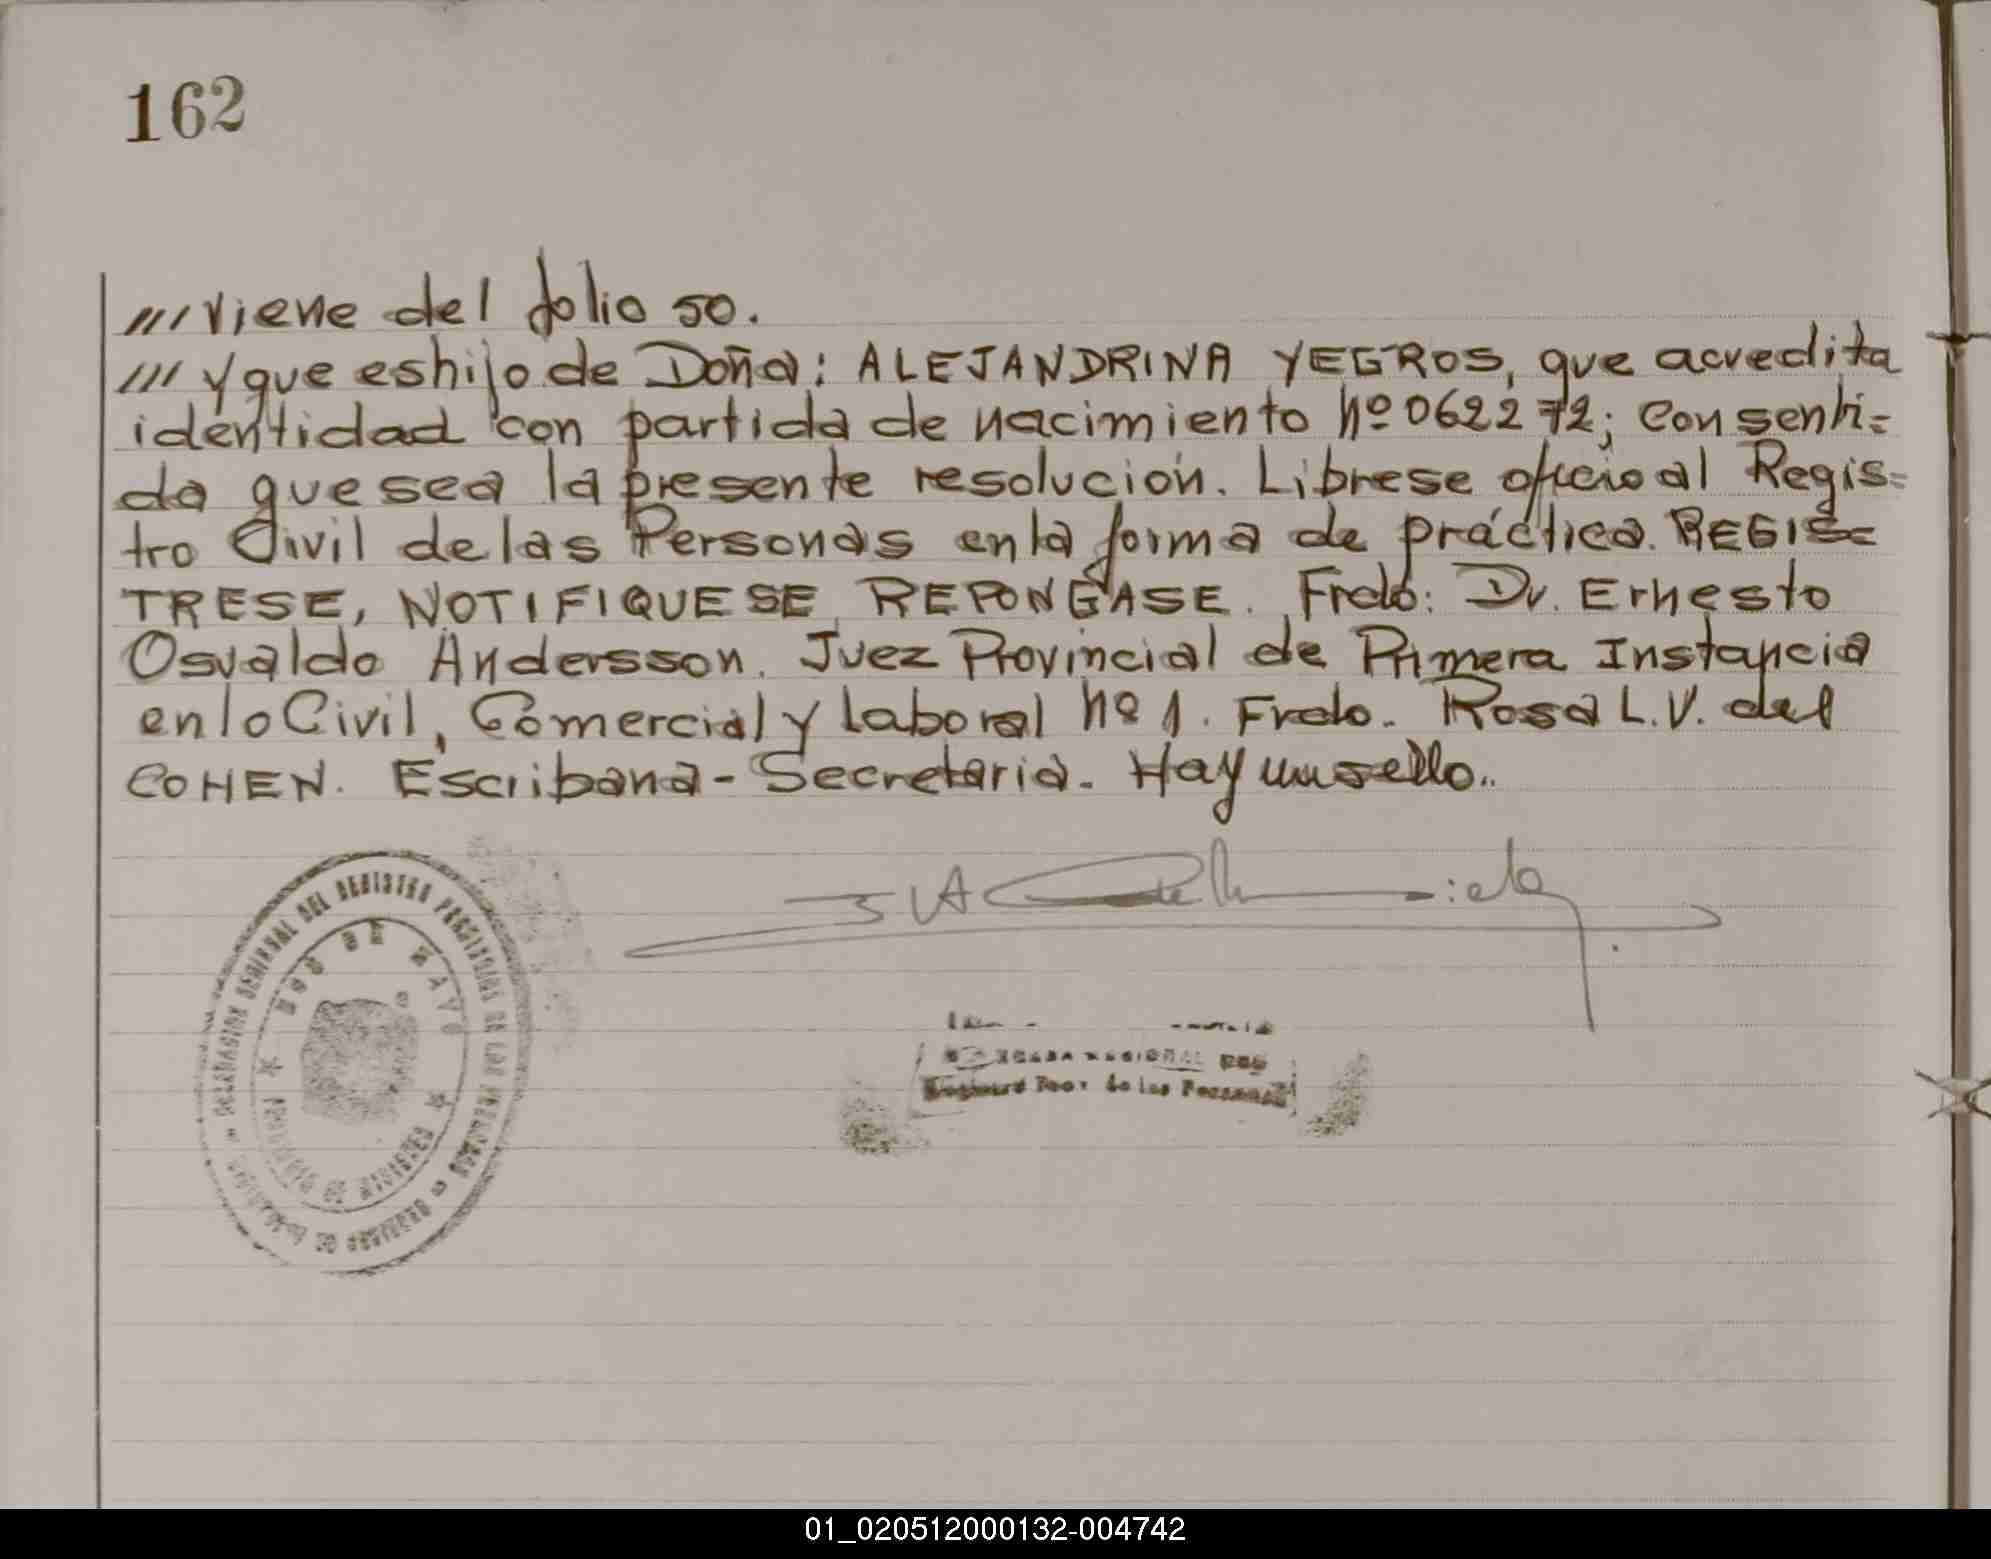 162
///viene del folio 50.
/// y que es hijo de Doña: ALEJANDRINA YEGROS, que acredita
identidad con partida de nacimiento nº 062272; Consenti=
da que sea la presente resolución. Librese oficio al Regis=
tro Civil de las Personas en la forma de práctica. REGIS=
TRESE, NOTIFIQUESE, REPONGASE. Frdo: Dr. Ernesto
Osvaldo Andersson. Juez Provincial de Primera Instancia
en lo Civil, Comercial y Laboral nº 1. Frdo. Rosa L.V. del
COHEN. Escribana - Secretaria. Hay un sello..
GENERAL DEL REGISTRO PROVINCIAL DE LAS PERSONAS
DOS DE MAYO
PROVINCIA DE MISIONES
de las Personas
01_020512000132-004742